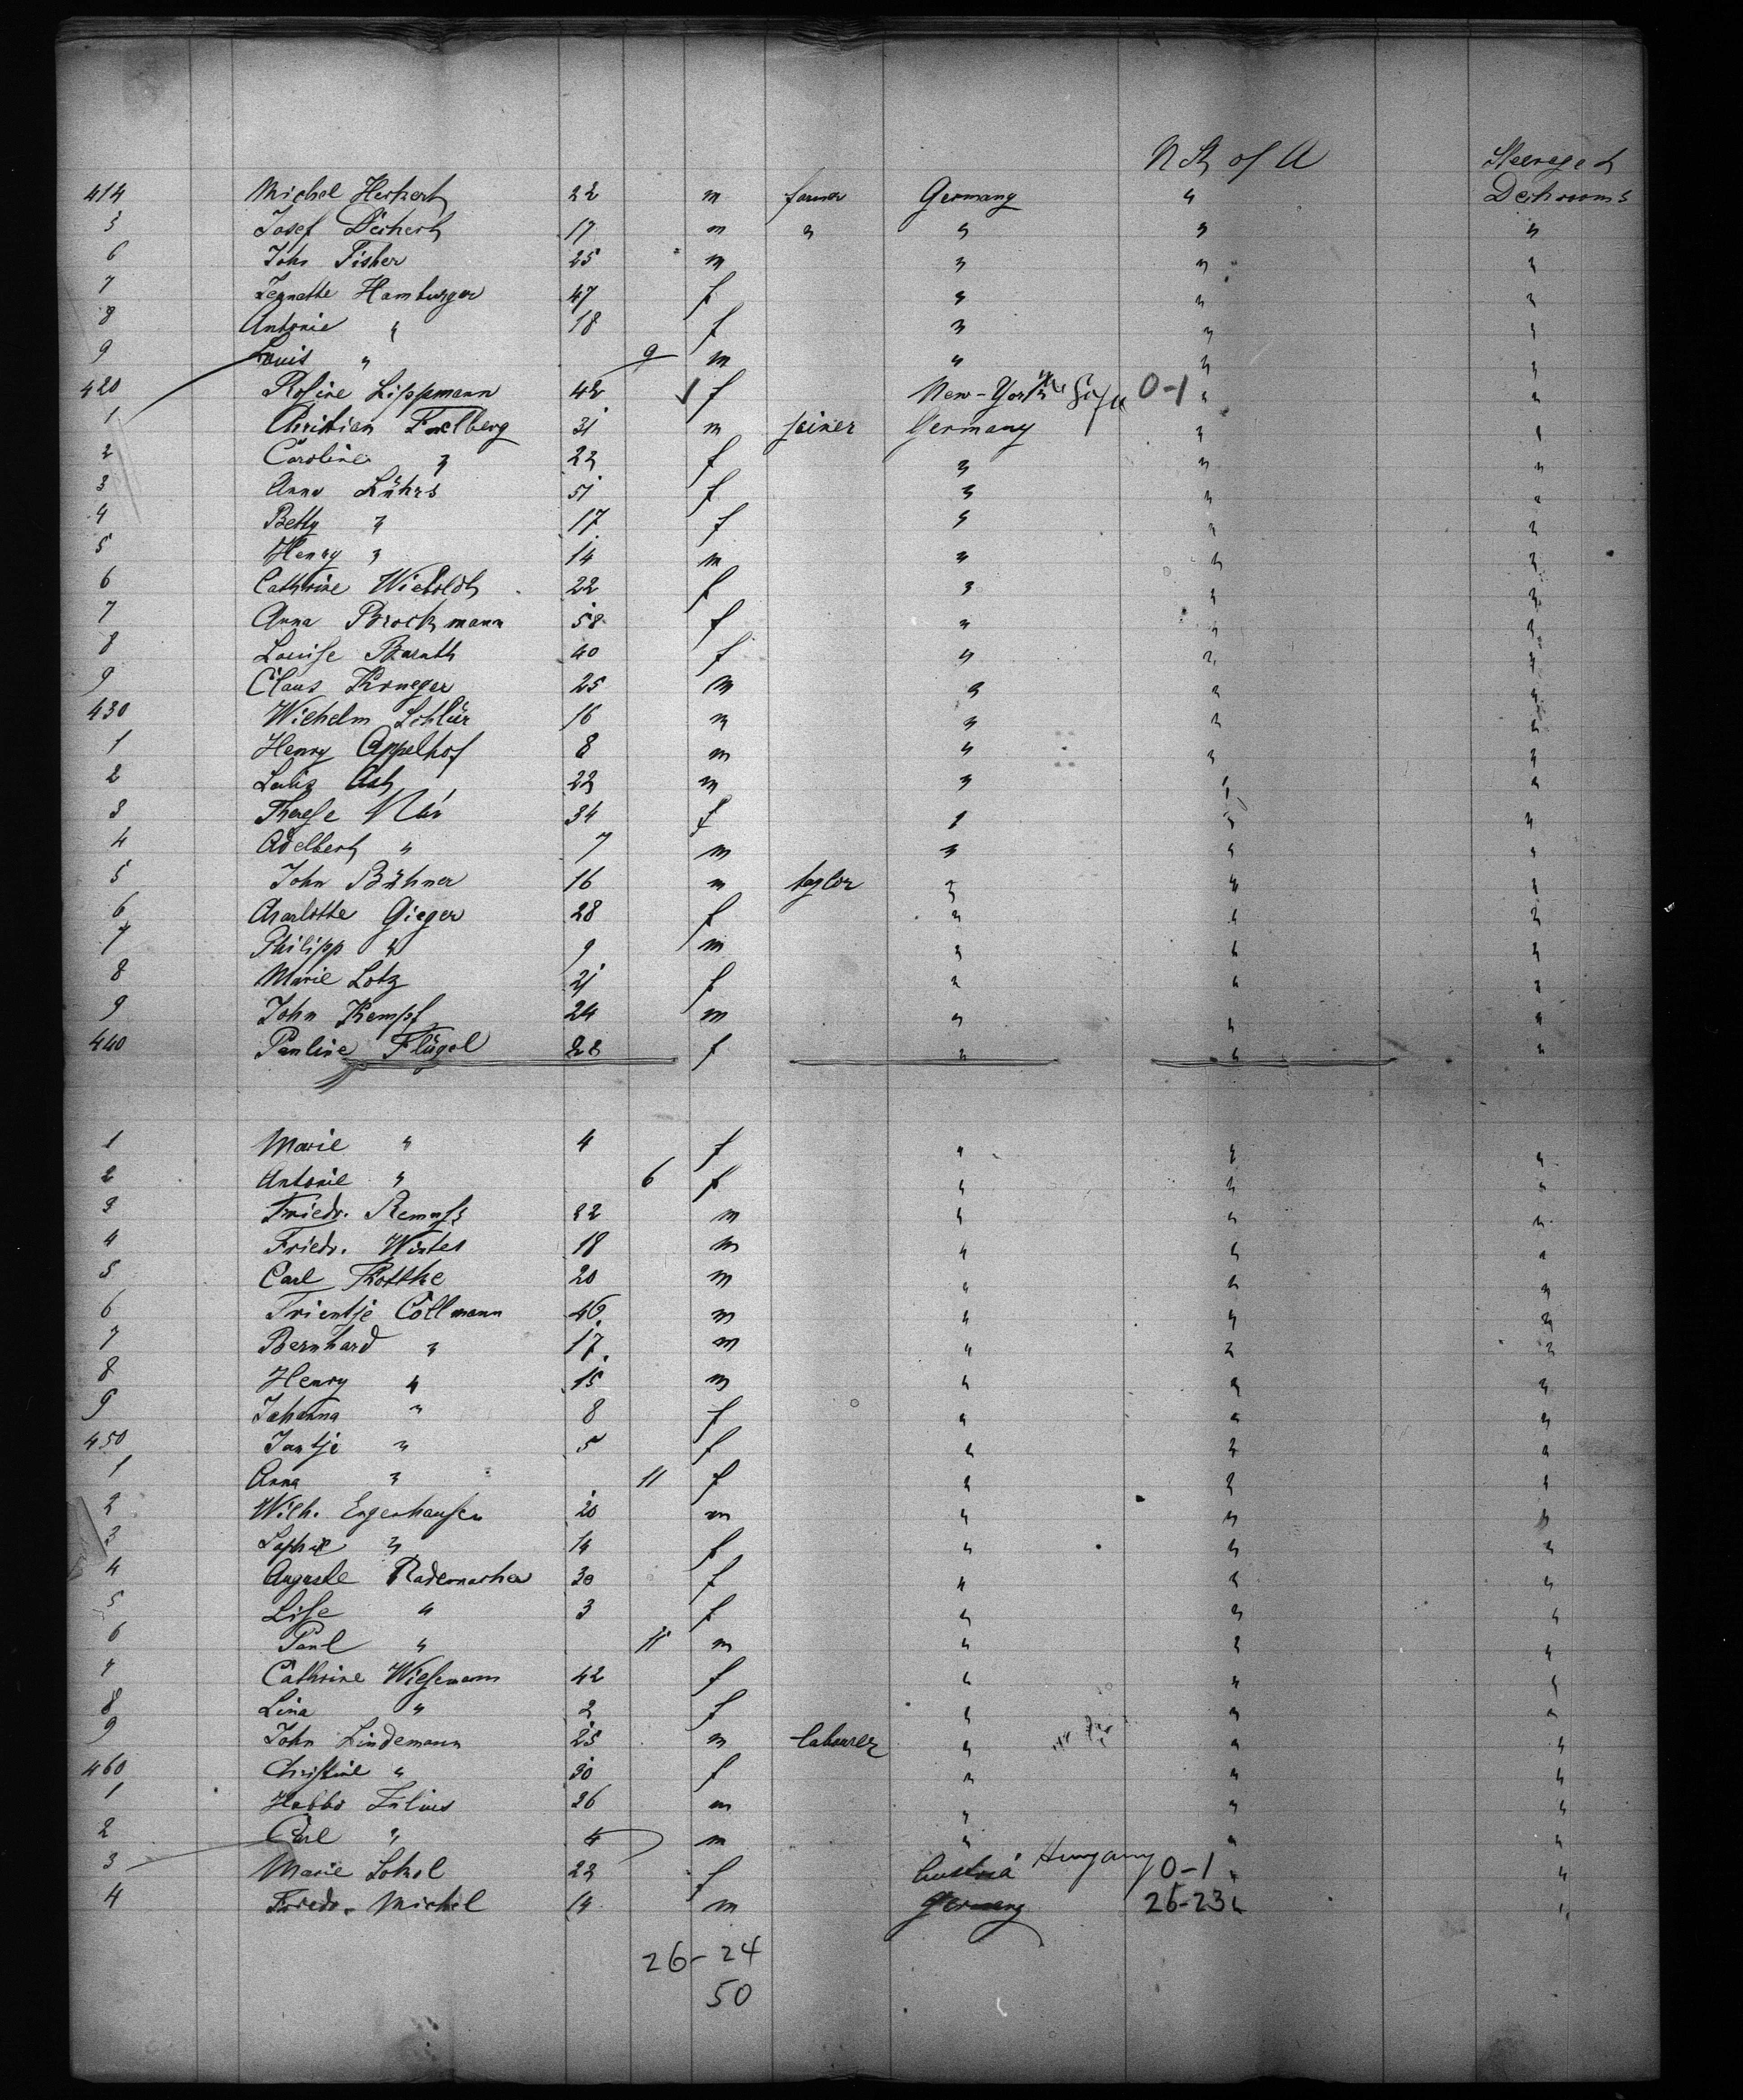 N St of A Steerage &
414 Michel Herhert 22 m farmer Germany " Deckrooms
5 Josef Deichert 17 m " " " "
6 John Fisher 25 m " " "
7 Jeanette Hamburger 47 f " " "
8 Antonie " 18 f " " "
9 Louis " 9 m " " "
420 Rosine Lippmann 42 f New-York 0-1 " "
1 Christian Faelberg 31 m joiner Germany " "
2 Caroline " 23 f " " "
3 Anna Lührs 51 f " " "
4 Betty " 17 f " " "
5 Henry " 14 m " " "
6 Cathrine Wieboldt 22 f " " "
7 Anna Brockmann 58 f " " "
8 Louise Barath 40 f " " "
9 Claus Krueger 25 m " " "
430 Wilhelm Schlür 16 m " " "
1 Henry Appelhof 8 m " " "
2 Ash 23 m " " "
3 Therese 34 f " " "
4 Adelbert " 7 m " " "
5 John Bühner 16 m taylor " " "
6 Charlotte Gieger 28 f " " "
7 Philipp " 9 m " " "
8 Marie Lotz 21 f " " "
9 John Kempf 24 m " " "
440 Pauline Flügel 28 f " " "
1 Marie " 4 f " " "
2 Antonie " 6 f " " "
3 Friedr. Remuss 22 m " " "
4 Friedr. Winter 18 m " " "
5 Carl Rottke 20 m " " "
6 Trientje Collmann 46 m " " "
7 Bernhard " 17 m " " "
8 Henry " 15 m " " "
9 Johanna " 8 f " " "
450 Jantje " 5 f " " "
1 Anna " 11 f " " "
2 Wilh. Engerhausen 20 m " " "
3 Sophie " 14 f " " "
4 Auguste Rademacher 30 f " " "
5 Lise " 3 f " " "
6 Paul " 11 m " " "
7 Cathrine Wiesemann 42 f " " "
8 Lina " 2 f " " "
9 John Lindemann 25 m labourer " " "
460 Christine " 30 f " " "
1 Habbo Julius 26 m " " "
2 Carl " 4 m " " "
3 Marie Sokol 23 f Austria Hungary 0-1 " "
4 Friedr. Michel 14 m Germany 26-23 " "
26-24
50